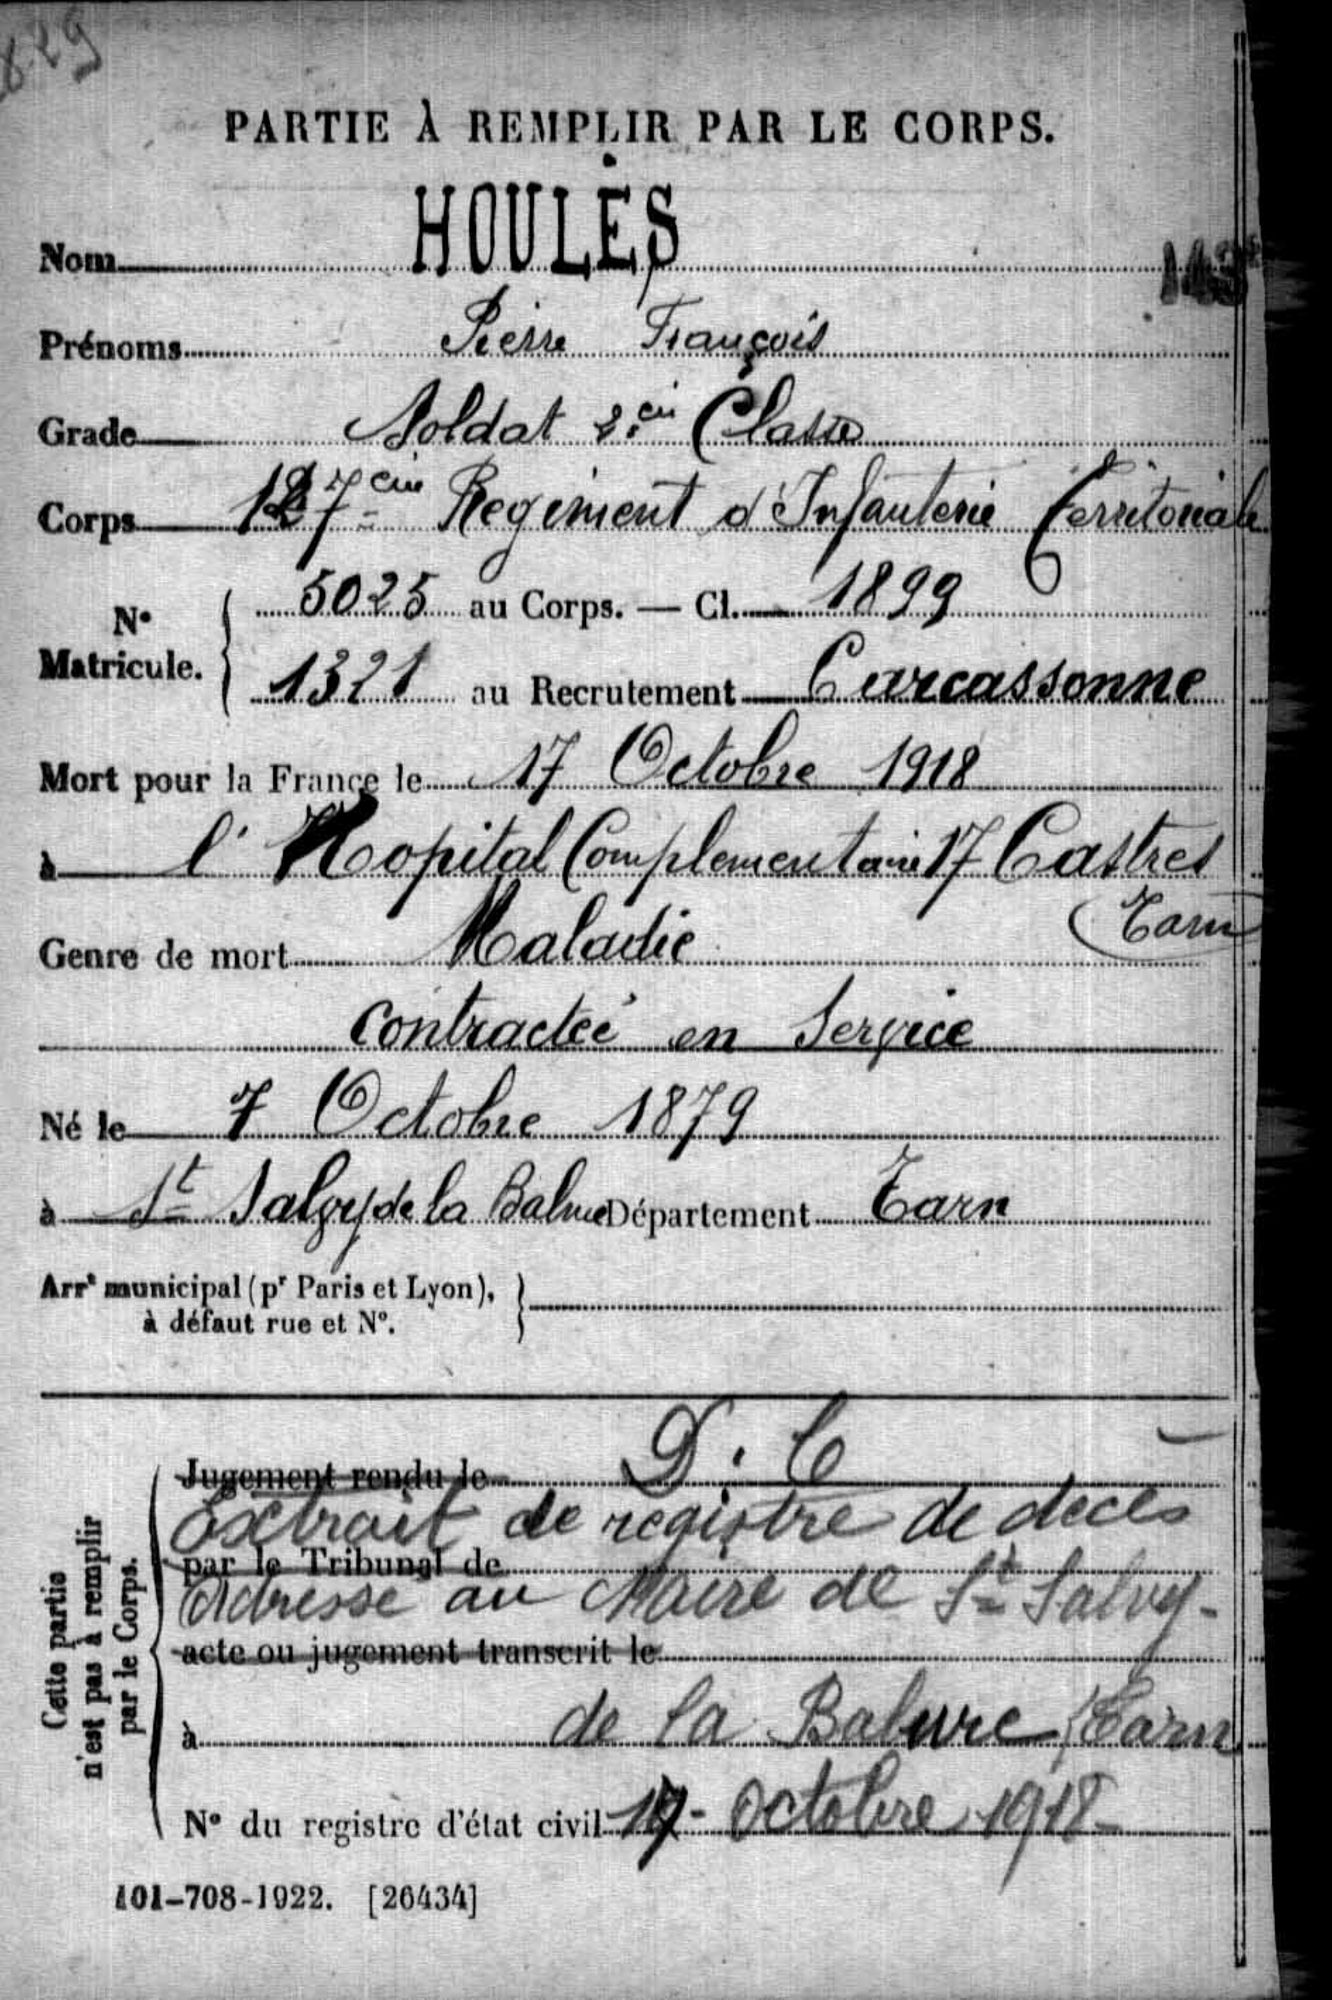 829
PARTIE À REMPLIR PAR LE CORPS.
Nom HOULÈS
Prénoms Pierre François
Grade Soldat 2.eme Classe
Corps 127eme Regiment d'Infanterie Territoriale
N° Matricule. 5025 au Corps. — Cl. 1899
1321 au Recrutement Carcassonne
Mort pour la France le 17 Octobre 1918
à l'Hopital Complementaire 17 Castres
(Tarn
Genre de mort Maladie
contractée en Service
Né le 7 Octobre 1879
à St Salvy de la Balme Département Tarn
Arrt municipal (pr Paris et Lyon),
à défaut rue et N°.
D. C
Jugement rendu le
Extrait de registre de deces
par le Tribunal de
Adressé au Maire de St Salvy-
acte ou jugement transcrit le
à de la Balme (Tarn
N° du registre d'état civil 17- Octobre 1918-
Cette partie
n'est pas à remplir
par le Corps.
101-708-1922. [26434]